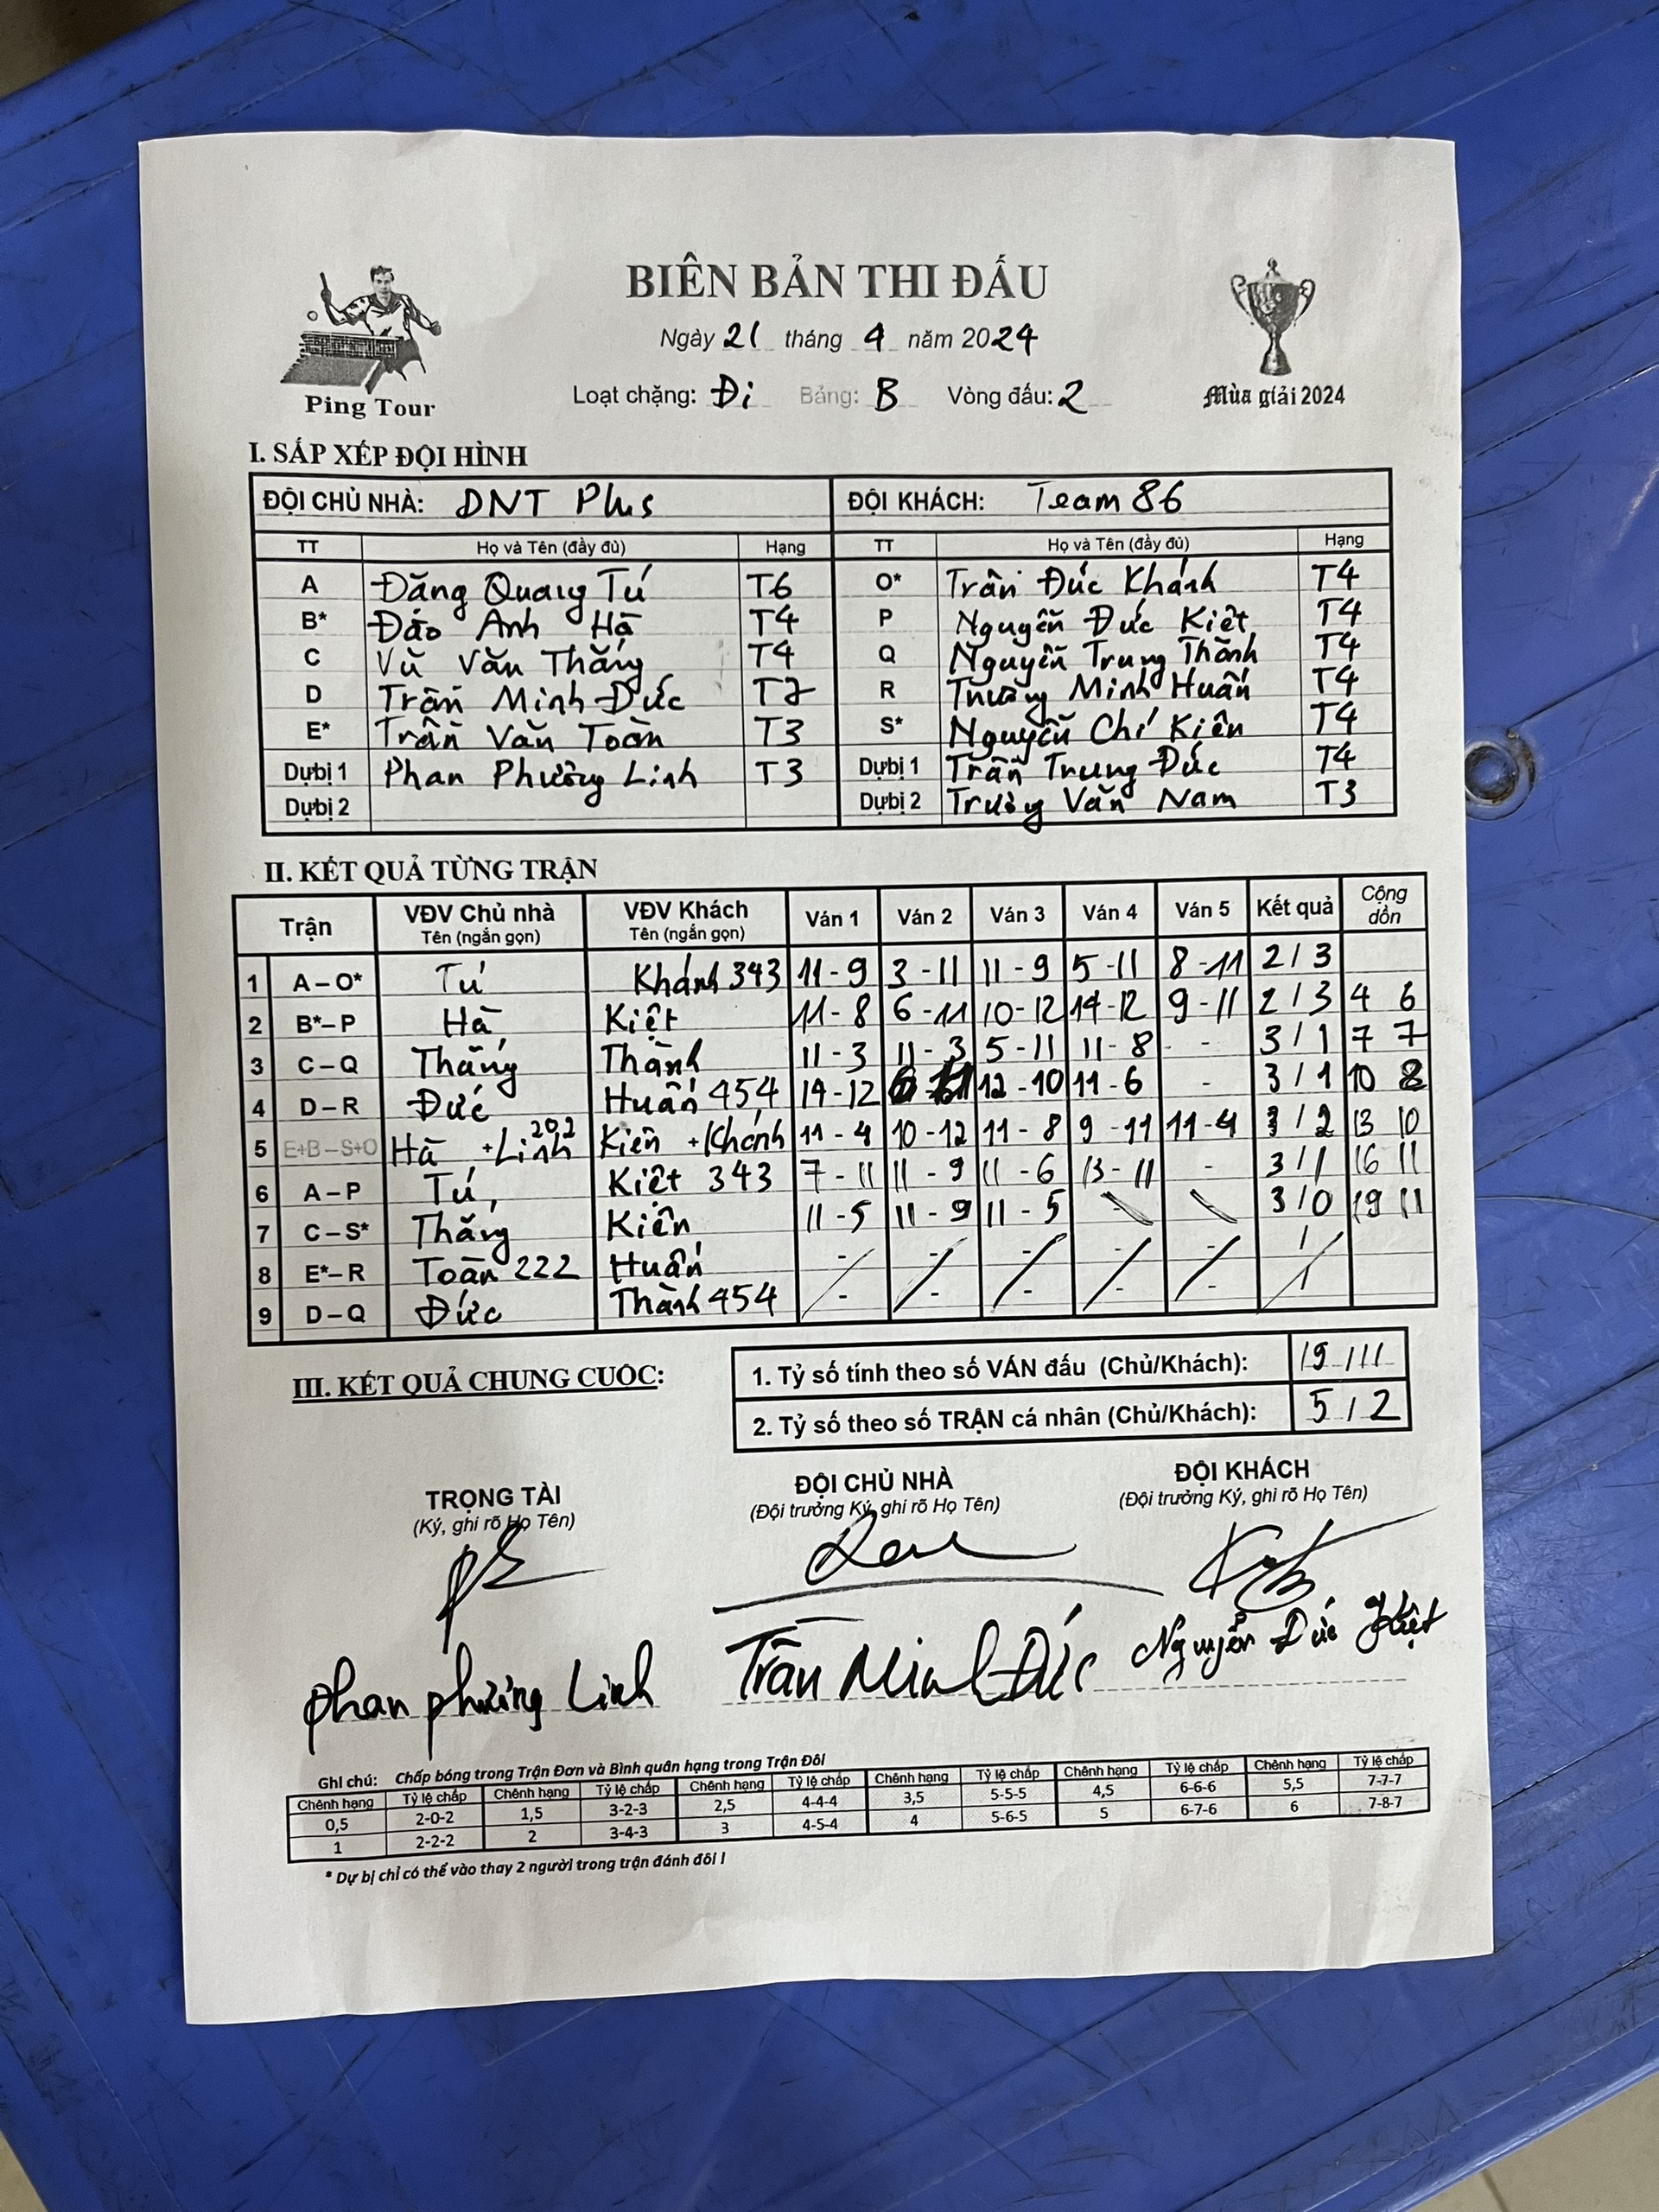 BIÊN BẢN THI ĐẤU
Ngày 21 tháng 4 năm 2024
Loạt chặng: Đi Bảng: B Vòng đấu: 2
Ping Tour
Mùa giải 2024
I. SẮP XẾP ĐỘI HÌNH
ĐỘI CHỦ NHÀ: DNT Plus ĐỘI KHÁCH: Team 86
TT Họ và Tên (đầy đủ) Hạng TT Họ và Tên (đầy đủ) Hạng
A Đăng Quang Tú T6 O* Trần Đức Khánh T4
B* Đào Anh Hà T4 P Nguyễn Đức Kiệt T4
C Vũ Văn Thắng T4 Q Nguyễn Trung Thành T4
D Trần Minh Đức T7 R Trương Minh Huấn T4
E* Trần Văn Toàn T3 S* Nguyễn Chí Kiên T4
Dự bị 1 Phan Phương Linh T3 Dự bị 1 Trần Trung Đức T4
Dự bị 2 Dự bị 2 Trương Văn Nam T3
II. KẾT QUẢ TỪNG TRẬN
Trận VĐV Chủ nhà Tên (ngắn gọn) VĐV Khách Tên (ngắn gọn) Ván 1 Ván 2 Ván 3 Ván 4 Ván 5 Kết quả Cộng dồn
1 A – O* Tú Khánh 343 11 - 9 3 - 11 11 - 9 5 - 11 8 - 11 2 / 3
2 B* – P Hà Kiệt 11 - 8 6 - 11 10 - 12 14 - 12 9 - 11 2 / 3 4 6
3 C – Q Thắng Thành 11 - 3 11 - 3 5 - 11 11 - 8 - 3 / 1 7 7
4 D – R Đức Huấn 454 14 - 12 12 - 10 11 - 6 - 3 / 1 10 8
5 E+B – S+O Hà + Linh 202 Kiên + Khánh 11 - 4 10 - 12 11 - 8 9 - 11 11 - 4 3 / 2 13 10
6 A – P Tú Kiệt 343 7 - 11 11 - 9 11 - 6 13 - 11 - 3 / 1 16 11
7 C – S* Thắng Kiên 11 - 5 11 - 9 11 - 5 - - 3 / 0 19 11
8 E* – R Toàn 222 Huấn - - - - - /
9 D – Q Đức Thành 454 - - - - - /
III. KẾT QUẢ CHUNG CUỘC:
1. Tỷ số tính theo số VÁN đấu (Chủ/Khách): 19 / 11
2. Tỷ số theo số TRẬN cá nhân (Chủ/Khách): 5 / 2
TRỌNG TÀI ĐỘI CHỦ NHÀ ĐỘI KHÁCH
(Ký, ghi rõ Họ Tên) (Đội trưởng Ký, ghi rõ Họ Tên) (Đội trưởng Ký, ghi rõ Họ Tên)
Phan Phương Linh Trần Minh Đức Nguyễn Đức Kiệt
Ghi chú: Chấp bóng trong Trận Đơn và Bình quân hạng trong Trận Đôi
Chênh hạng Tỷ lệ chấp Chênh hạng Tỷ lệ chấp Chênh hạng Tỷ lệ chấp Chênh hạng Tỷ lệ chấp Chênh hạng Tỷ lệ chấp Chênh hạng Tỷ lệ chấp
0,5 2-0-2 1,5 3-2-3 2,5 4-4-4 3,5 5-5-5 4,5 6-6-6 5,5 7-7-7
1 2-2-2 2 3-4-3 3 4-5-4 4 5-6-5 5 6-7-6 6 7-8-7
* Dự bị chỉ có thể vào thay 2 người trong trận đánh đôi !